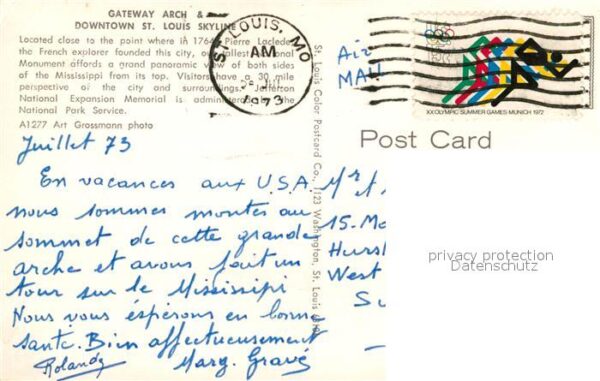 GATEWAY ARCH &
DOWNTOWN ST. LOUIS SKYLINE
Located close to the point where in 1764 Pierre Laclede,
the French explorer founded this city, our tallest National
Monument affords a grand panoramic view of both sides
of the Mississippi from its top. Visitors have a 30 mile
perspective of the city and surroundings. Jefferson
National Expansion Memorial is administered by the
National Park Service.
A1277 Art Grossmann photo
ST. LOUIS, MO
AM
1973
Air
MAIL
XX OLYMPIC SUMMER GAMES·MUNICH 1972
Post Card
St. Louis Color Postcard Co., 1123 Washington, St. Louis
Juillet 73
En vacances aux U.S.A.
nous sommes montés au
sommet de cette grande
arche et avons fait un
tour sur le Mississipi
Nous vous espérons en bonne
santé. Bien affectueusement
Rolande Marg. Gravé
15. Mo
Hurst
West
privacy protection
Datenschutz